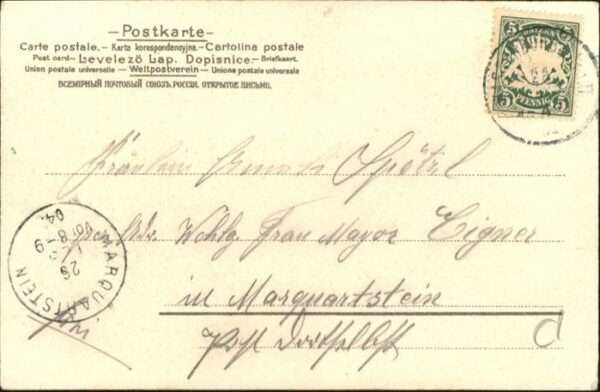 Postkarte
Carte postale. – Karta korespondencyjna. – Cartolina postale
Post card – Levelező Lap. Dopisnice. – Briefkaart.
Union postale universelle – Weltpostverein – Unione postale universale
ВСЕМІРНЫЙ ПОЧТОВЫЙ СОЮЗЪ. РОССІЯ. ОТКРЫТОЕ ПИСЬМО.
5 5
BAYERN
5 PFENNIG 5
Fräulein Spötzl
Wohlg. Frau Mayor Eigner
in Marquartstein
Post dortselbst
MARQUARTSTEIN
29
04.